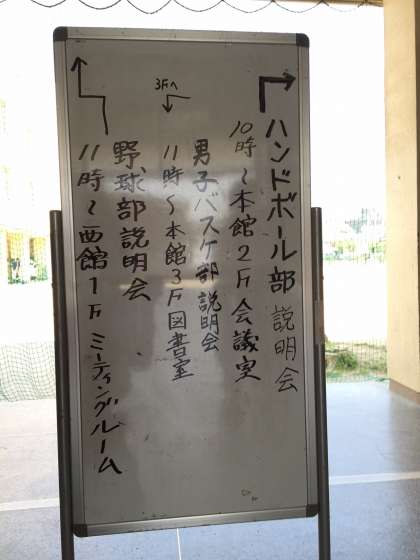 ハンドボール部説明会
10時〜本館2F会議室
3Fへ
男子バスケ部説明会
11時〜本館3F図書室
野球部説明会
11時〜西館1F ミーティングルーム